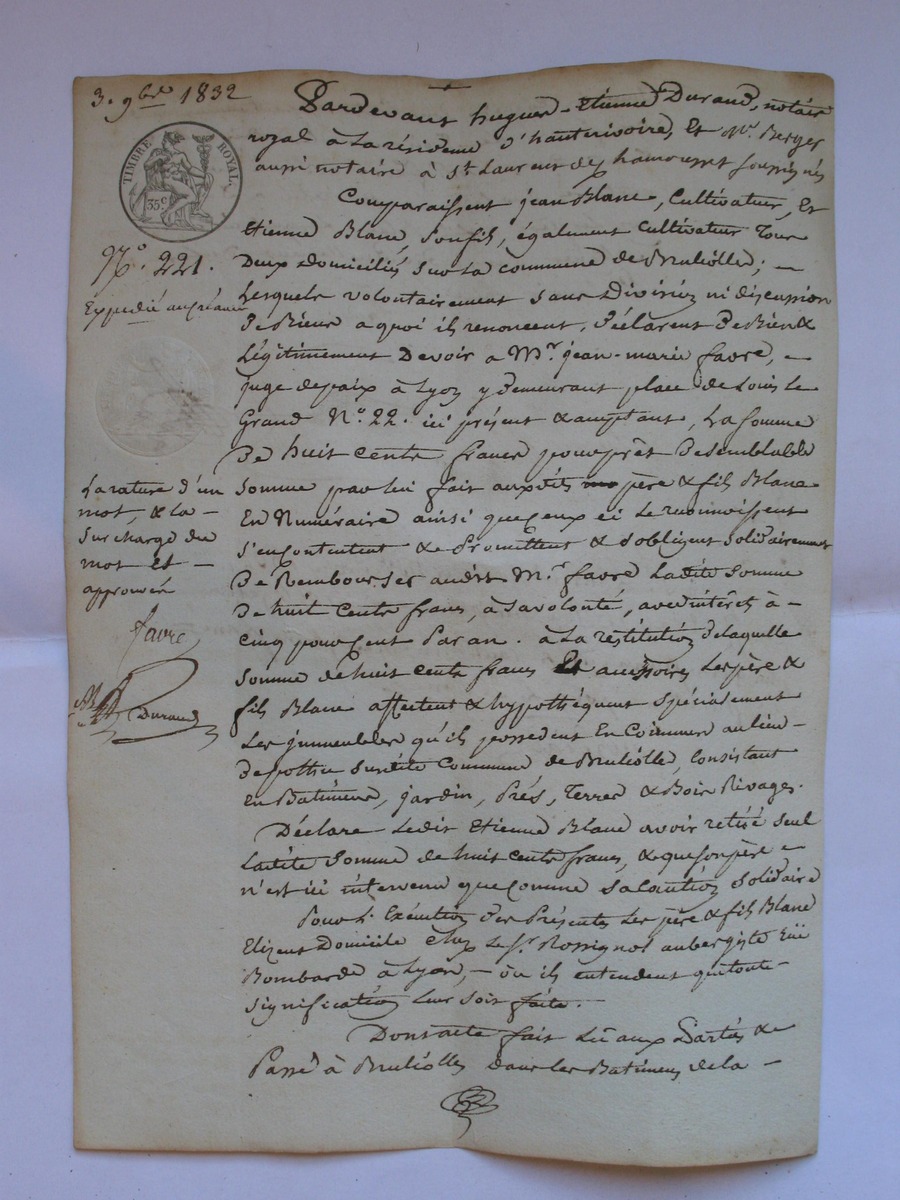 3. 9bre 1832
TIMBRE ROYAL.
35c
No. 221.
Expédié au créancier
La rature d'un
mot, & la
surcharge du
mot Et
approuvées
favre
Durand
Pardevant hugues-Etienne Durand, notaire
royal à La résidence d'hauterivoire, Et Me. Berger
aussi notaire à St. Laurent de Chamousset soussignés
Comparaissent jean Blanc, Cultivateur, Et
Etienne Blanc, son fils, également Cultivateur Tous
Deux Domiciliés sur La commune de Brulliolle; —
Lesquels volontairement sans Division ni discussion
De Biens a quoi ils renoncent, Déclarent De Bien &
Légitimement Devoir a Mr. jean-marie favre, —
juge de paix à Lyon y Demeurant place de Louis le
Grand No. 22. ici présent & acceptant, La somme
De huit cents francs pour prêt De semblable
somme par lui fait auxdits père & fils Blanc
En Numéraire ainsi que Ceux ci Le reconnoissent
s'en contentent & Promettent & s'obligent solidairement
De Rembourser audit Mr. favre Ladite somme
De huit cents francs, à sa volonté, avec intérêts à —
cinq pour cent Par an. à La restitution De laquelle
somme de huit cents francs Et accessoires Les père &
fils Blanc affectent & hypothéquent spécialement
Les immeubles qu'ils possedent En Commun au lieu —
De sur dite Commune de Brulliolle, consistant
En Batiments, jardin, Prés, Terres & Bois Rivages.
Déclare Ledit Etienne Blanc avoir retiré seul
Ladite somme de huit cents francs, & que son père —
n'est ici intervenu que comme sa caution solidaire
Pour L'Exécution Des Présentes Les père & fils Blanc
Elizent Domicile chez Le Sr. Rossignol aubergiste rue
Bombarde à Lyon, — où ils entendent que toute —
signification leur soit faite.
Dont acte fait Lû aux Parties &
Passé à Brulliolles dans les Batimens de la —